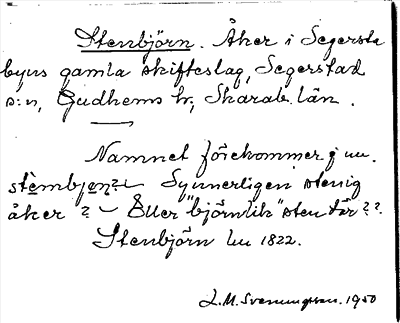 Stenbjörn. Åker i Segersta
byns gamla skifteslag, Segerstad
s:n, Gudhems hr, Skarab. län.
Namnet förekommer j nu.
stembjen?- Synnerligen stenig
åker? - Eller "björnlik" sten där??
Stenbjörn lu 1822.
L.M. Svenungsson. 1950